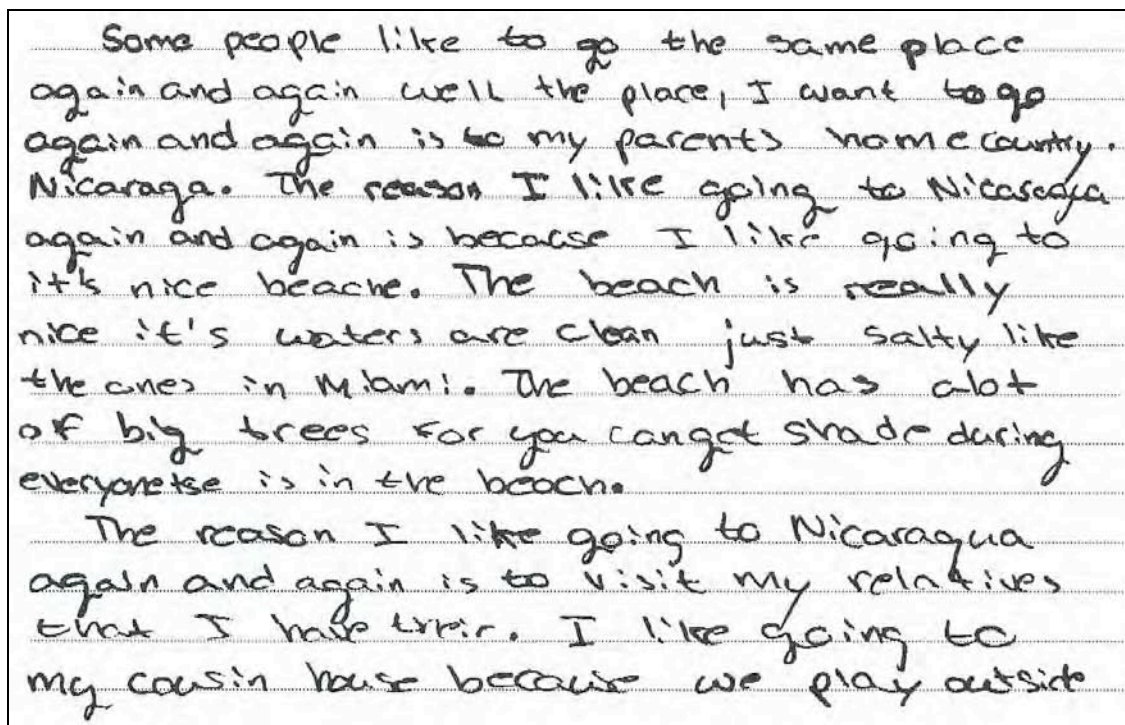 Some people like to go the same place
again and again well the place, I want to go
again and again is to my parent's home country.
Nicaraga. The reason I like going to Nicaragua
again and again is because I like going to
it's nice beache. The beach is really
nice it's waters are clean just salty like
the ones in Miami. The beach has alot
of big trees for you can get shade during
everyonetse is in the beach.
The reason I like going to Nicaragua
again and again is to visit my relatives
that I have their. I like going to
my cousin house because we play outside